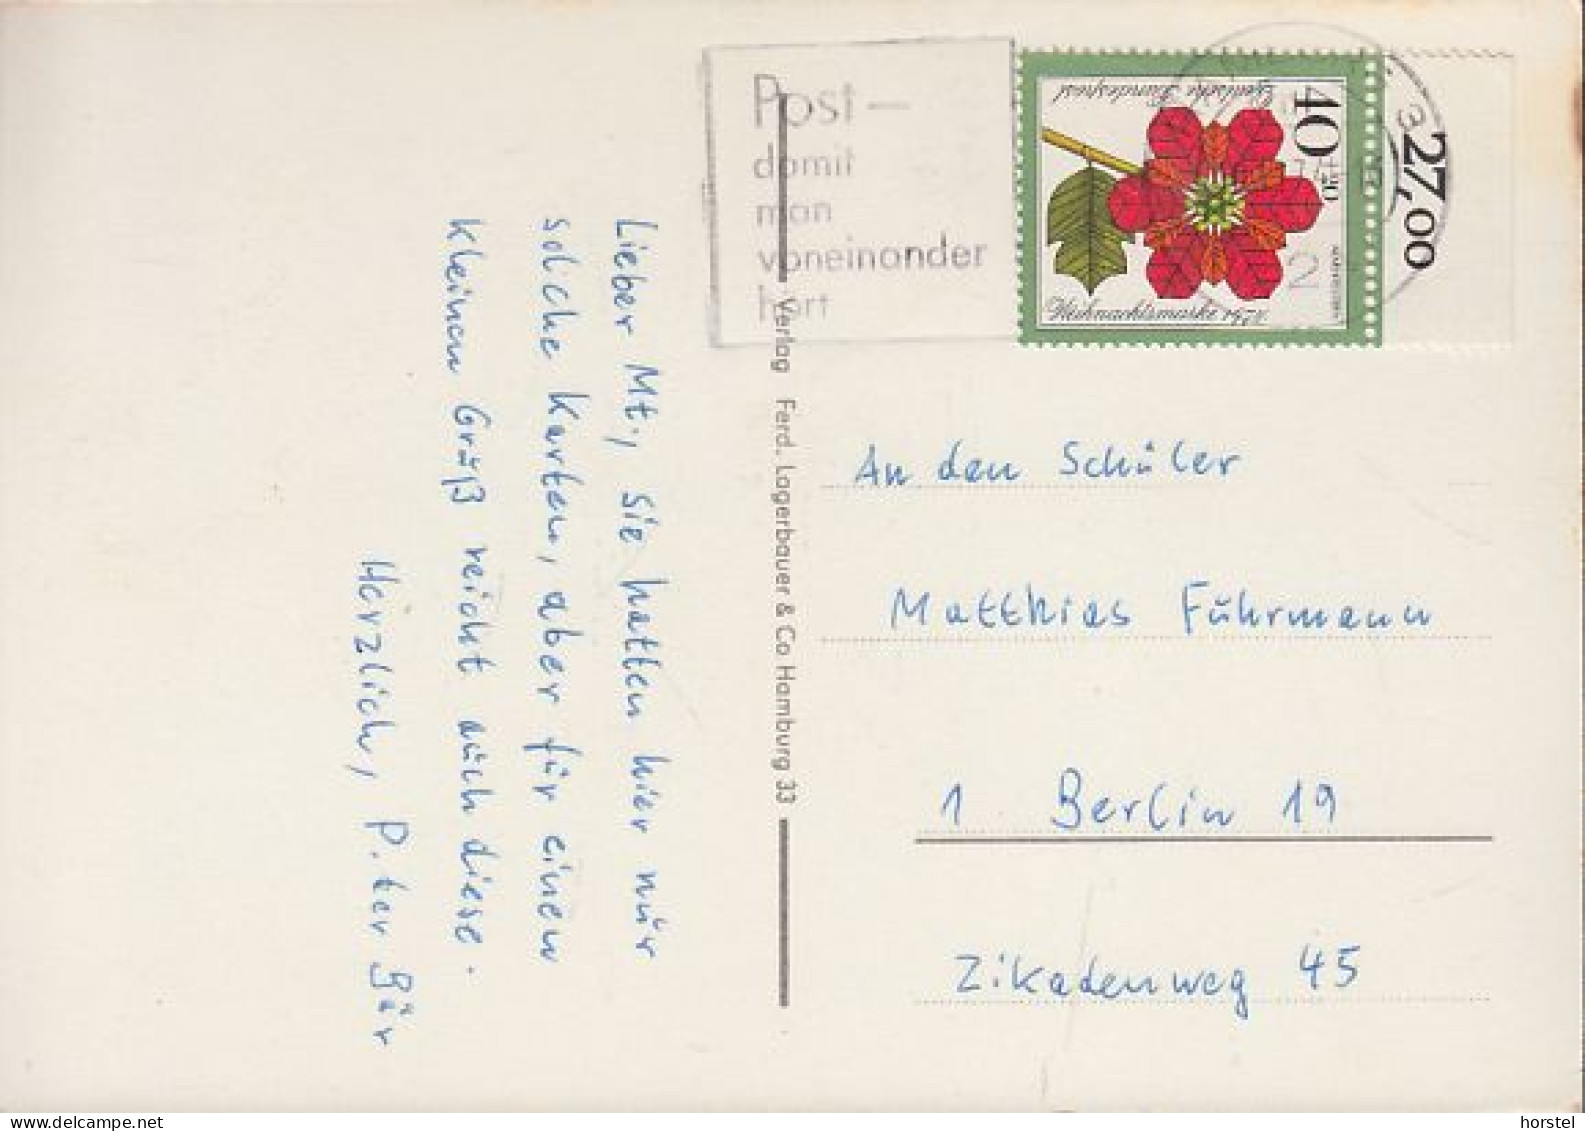 Post-
damit
man
voneinander
hört
Deutsche Bundespost
40
+20
Weihnachtsmarke 1974
27,00
2
Lieber Mt., sie hatten hier nur
solche Karten, aber für einen
kleinen Gruß reicht auch diese.
Herzlich, Peter Bär
Verlag Ferd. Lagerbauer & Co Hamburg 33
An den Schüler
Matthias Führmann
1 Berlin 19
Zikadenweg 45
www.delcampe.net
horstel